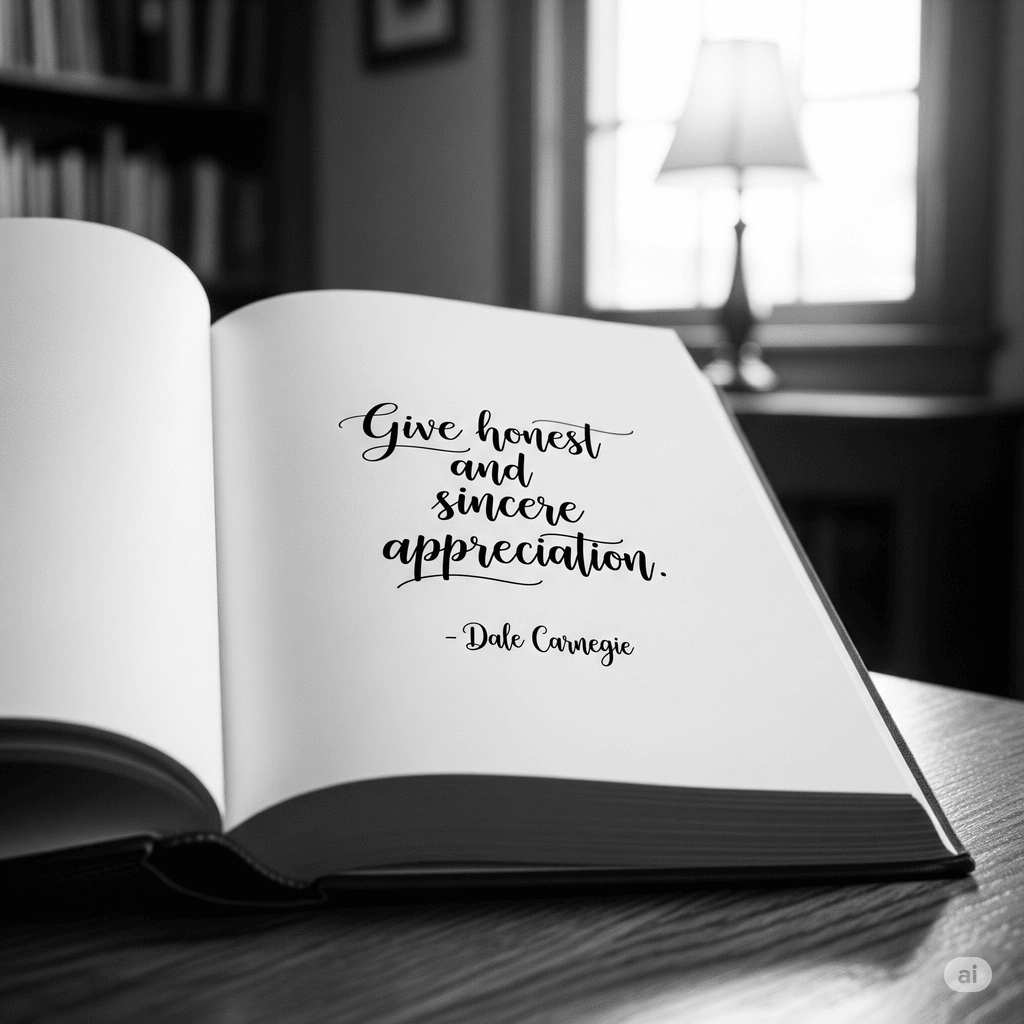 Give honest
and
sincere
appreciation.
- Dale Carnegie
ai